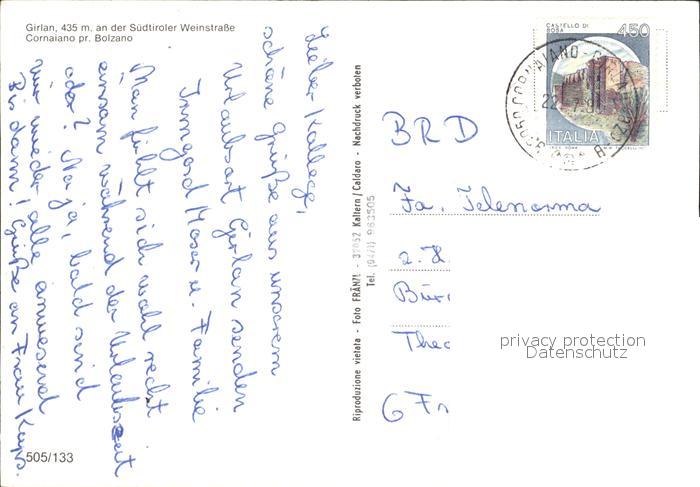 Girlan, 435 m, an der Südtiroler Weinstraße
Cornaiano pr. Bolzano
Lieber Kollege,
schöne Grüße aus unserem
Urlaubsort Girlan senden
Irmgard Moser u. Familie
Man fühlt sich wohl recht
einsam während der Urlaubszeit
oder? Na ja, bald sind
wir wieder alle anwesend
Bis dann! Grüße an Frau Kaps.
505/133
Riproduzione vietata - Foto FRÄNZL - 37052 Kaltern/Caldaro - Nachdruck verboten
Tel. (0471) 963505
CASTELLO DI
ROSA
450
ITALIA
BRD
Fa. Telenorma
z. H.
Thec
6 Fr
privacy protection
Datenschutz